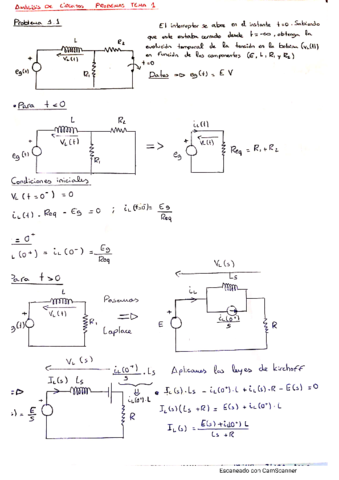 ANÁLISIS DE CIRCUITOS PROBLEMAS TEMA 1
Problema 1.1
El interruptor se abre en el instante t=0. Sabiendo
que este estaba cerrado desde t=-∞, obtenga la
evolución temporal de la tensión en la bobina (VL(t))
en función de los componentes (E, L, R1 y R2)
Datos => eg(t) = E V
L
R2
VL(t)
eg(t)
R1
t=0
• Para t<0
L
R2
VL(t)
eg(t)
R1
=>
iL(t)
VL(t)
eg
Req = R1 // R2
Condiciones iniciales
VL (t=0⁻) = 0
iL(t) · Req - Eg = 0 ; iL(t=0⁻) = Eg/Req
= 0⁺
L(0⁺) = iL(0⁻) = Eg/Req
Para t>0
L
VL(t)
g(t)
R1
Pasamos
=>
Laplace
VL(s)
Ls
iL
iL(0⁺)/s
E
R
VL(s)
IL(s) Ls
iL(0⁺)/s · Ls
iL(0⁺)·L
R
) = E/s
Aplicamos las leyes de kirchoff
• IL(s)·Ls - iL(0⁺)·L + iL(s)·R - E(s) = 0
IL(s)(Ls + R) = E(s) + iL(0⁺)·L
IL(s) = E(s)+iL(0⁺)L / Ls + R
Escaneado con CamScanner